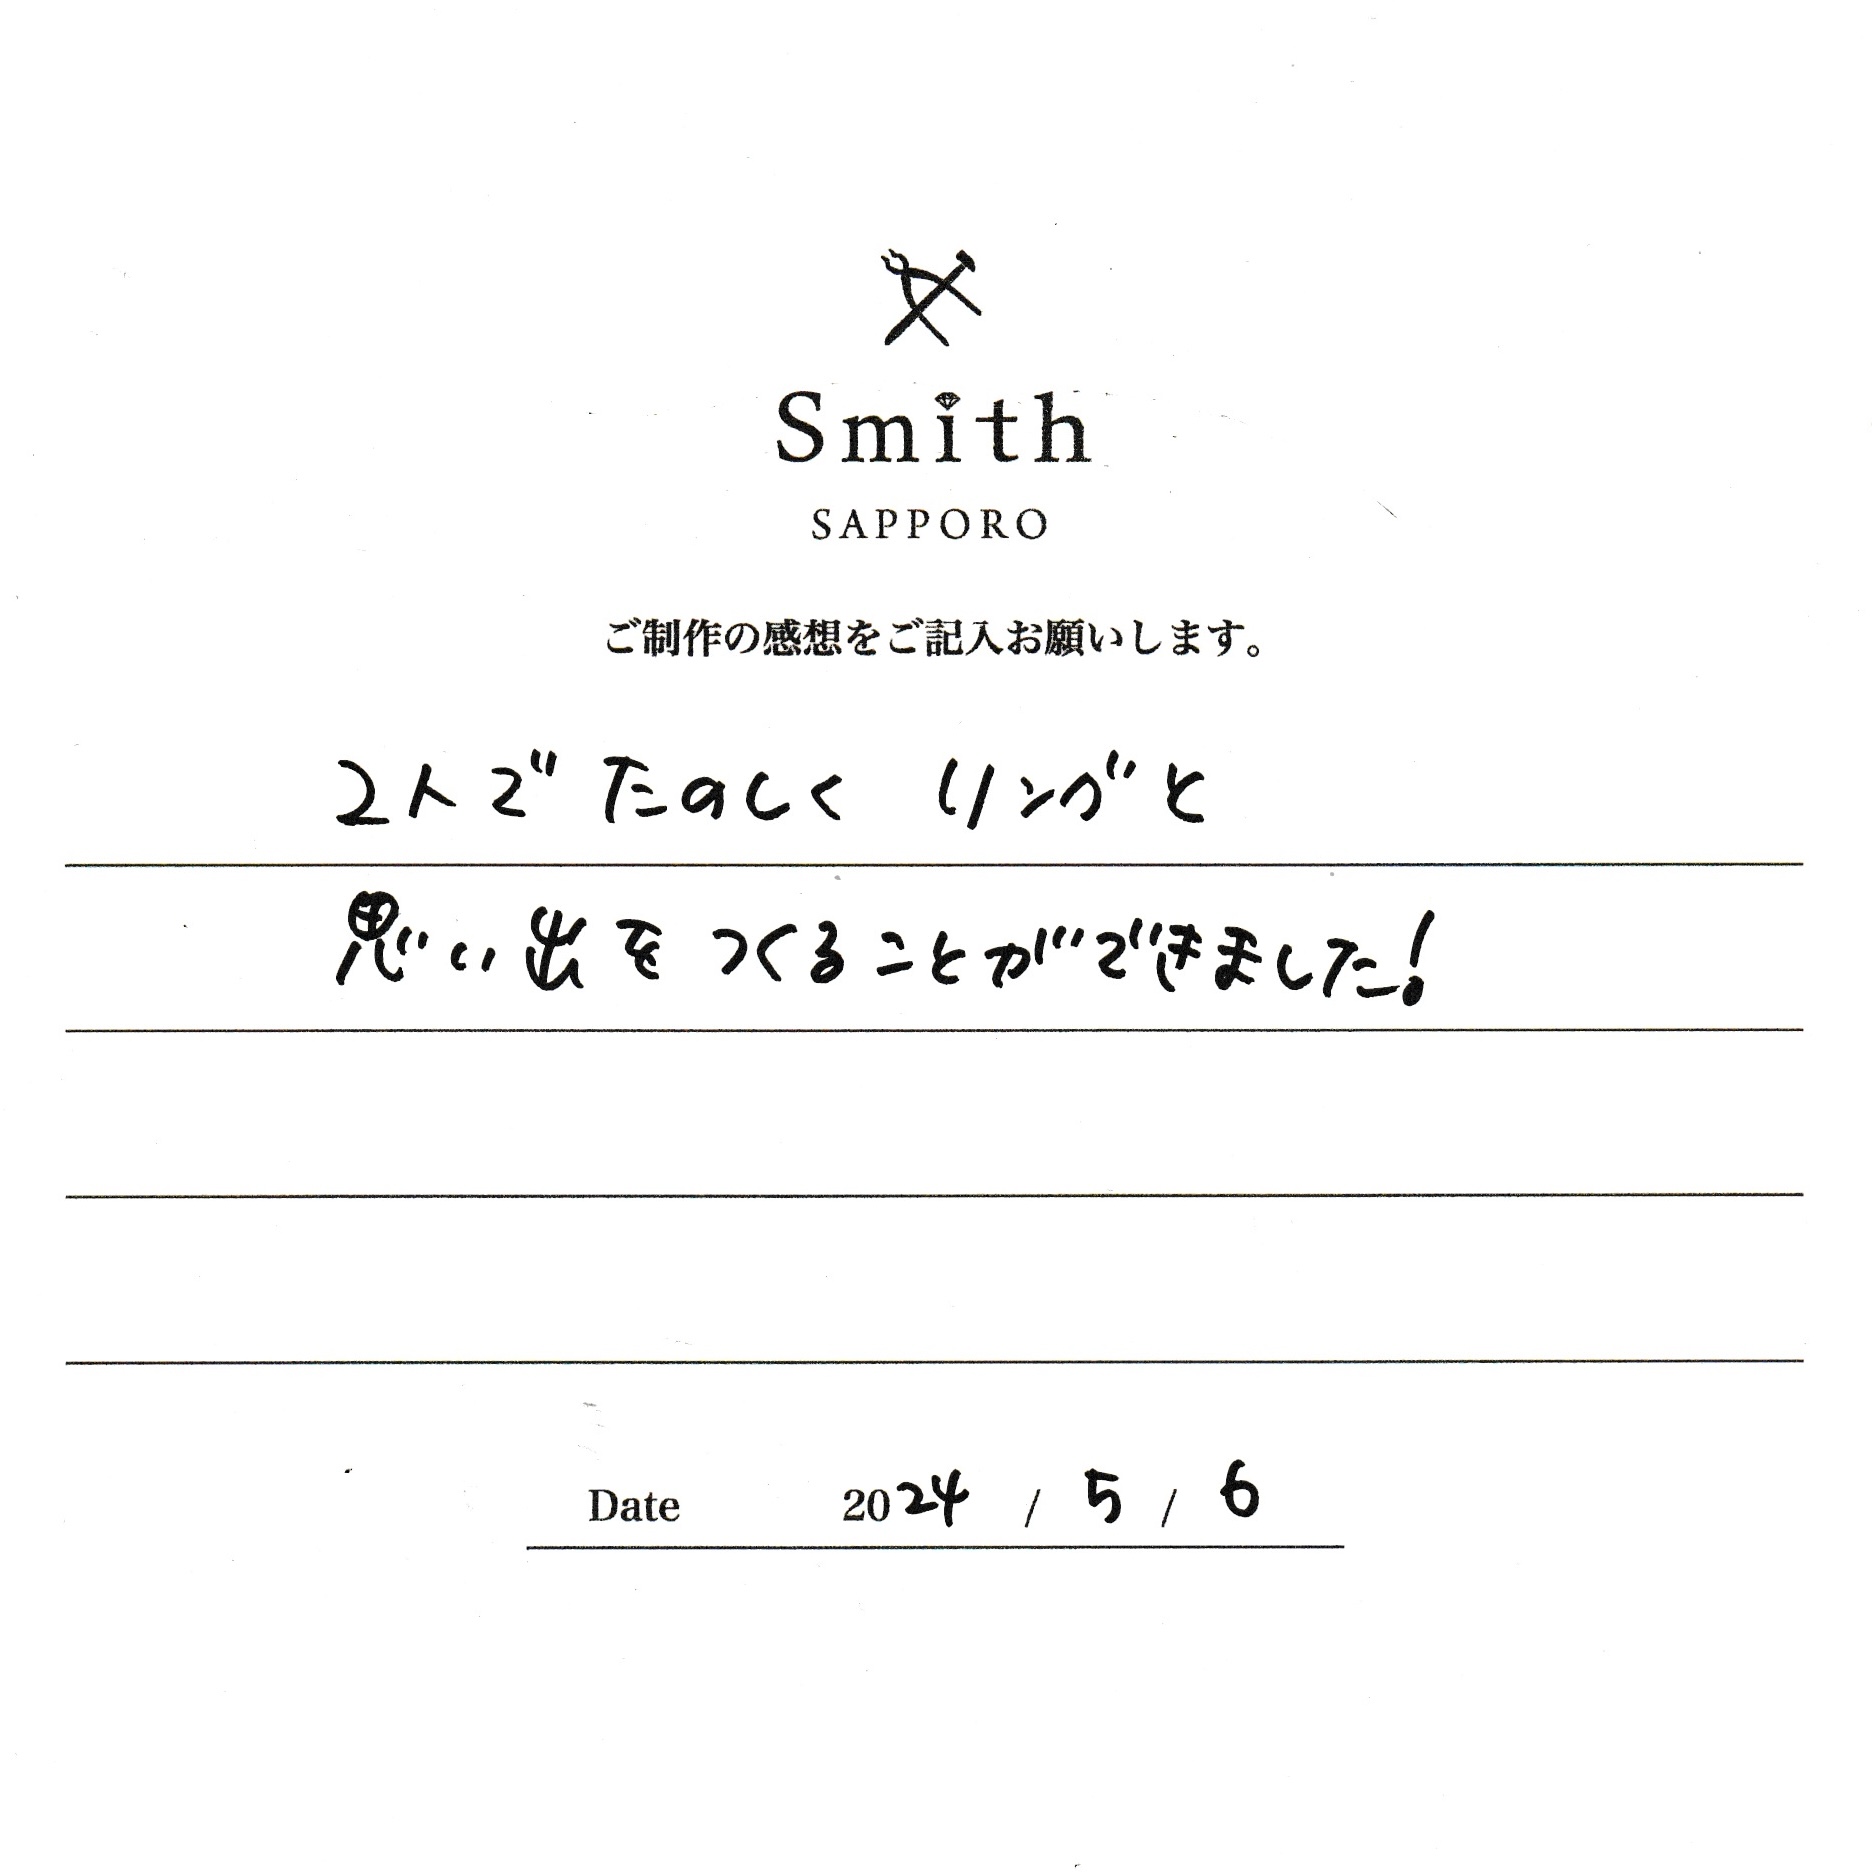 Smith
SAPPORO
ご制作の感想をご記入お願いします。
2人で たのしく リングと
思い出を つくることができました!
Date 2024 / 5 / 6